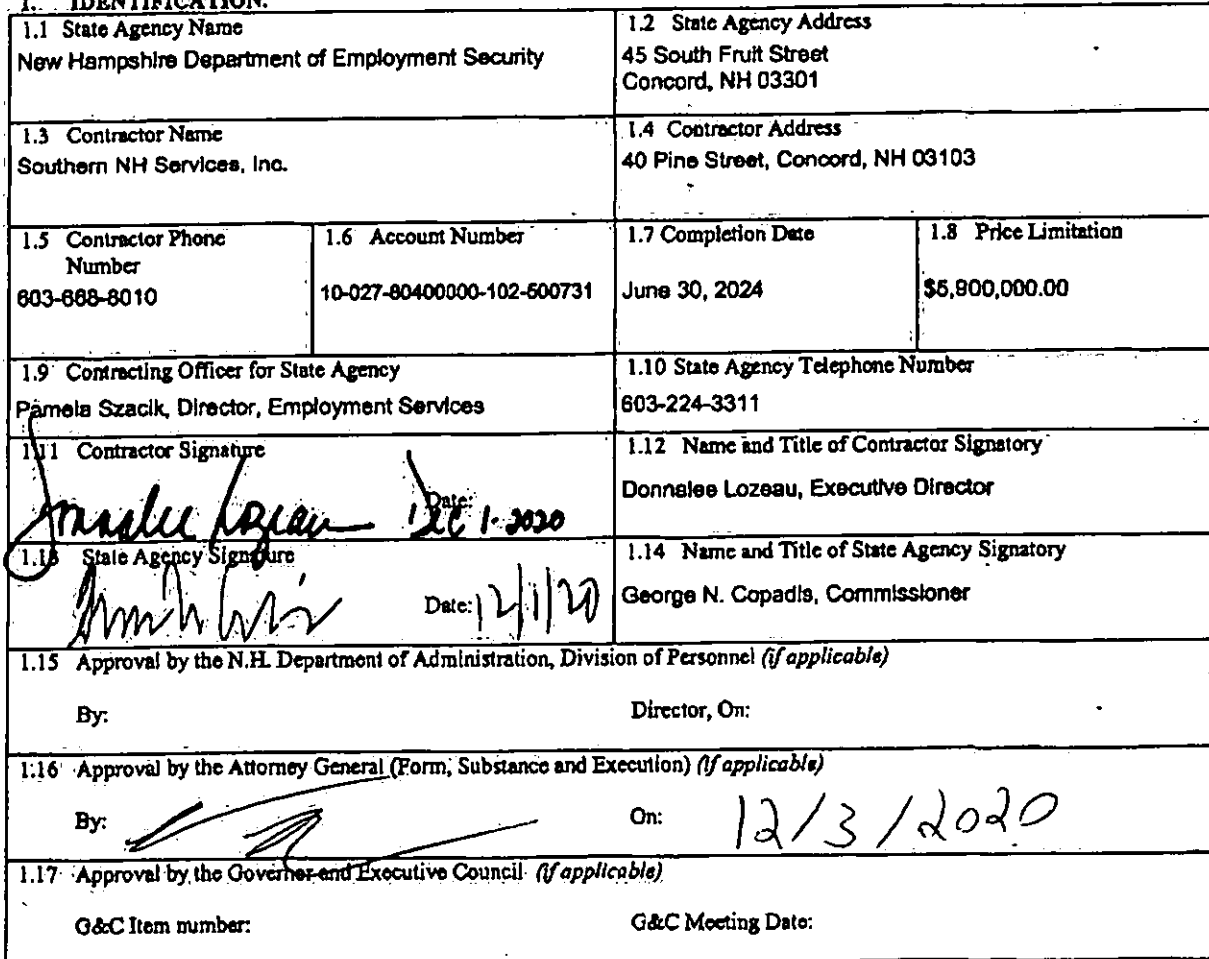 1. IDENTIFICATION.
1.1 State Agency Name
New Hampshire Department of Employment Security
1.2 State Agency Address
45 South Fruit Street
Concord, NH 03301
1.3 Contractor Name
Southern NH Services, Inc.
1.4 Contractor Address
40 Pine Street, Concord, NH 03103
1.5 Contractor Phone
Number
603-668-8010
1.6 Account Number
10-027-80400000-102-500731
1.7 Completion Date
June 30, 2024
1.8 Price Limitation
$5,900,000.00
1.9 Contracting Officer for State Agency
Pamela Szacik, Director, Employment Services
1.10 State Agency Telephone Number
603-224-3311
1.11 Contractor Signature
Donnalee Lozeau Date: Dec 1. 2020
1.12 Name and Title of Contractor Signatory
Donnalee Lozeau, Executive Director
1.13 State Agency Signature
Date: 12/1/20
1.14 Name and Title of State Agency Signatory
George N. Copadis, Commissioner
1.15 Approval by the N.H. Department of Administration, Division of Personnel (if applicable)
By: Director, On:
1.16 Approval by the Attorney General (Form, Substance and Execution) (if applicable)
By: On: 12/3/2020
1.17 Approval by the Governor and Executive Council (if applicable)
G&C Item number: G&C Meeting Date: